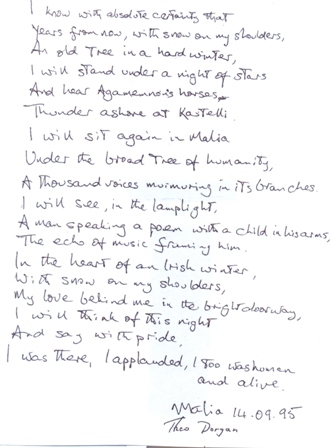 I know with absolute certainty that
Years from now, with snow on my shoulders,
An old Tree in a hard winter,
I will stand under a night of stars
And hear Agamemnon's horses
Thunder ashore at Kastelli.
I will sit again in Malia
Under the broad Tree of humanity,
A thousand voices murmuring in its branches.
I will see, in the lamplight,
A man speaking a poem with a child in his arms,
The echo of music framing him.
In the heart of an Irish winter,
With snow on my shoulders,
My love behind me in the bright doorway,
I will think of this night
And say with pride,
I was there, I applauded, I too was human
and alive.
Malia 14.09.95
Theo Dorgan